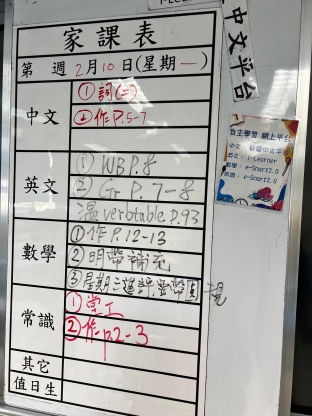 家課表
第 週 2月10日(星期一)
中文
① 詞(二)
② 作P.5-7
英文
① WB P.8
② Gr P.7-8
溫 verb table P.93
數學
① 作P.12-13
② 明帶補充
③ 星期三進評帶圓規
常識
① 堂工
② 作P.2-3
其它
值日生
中文平台
自主學習 網上平台
英文: i-Learner
數學: e-Smart2.0
常識: e-Smart2.0